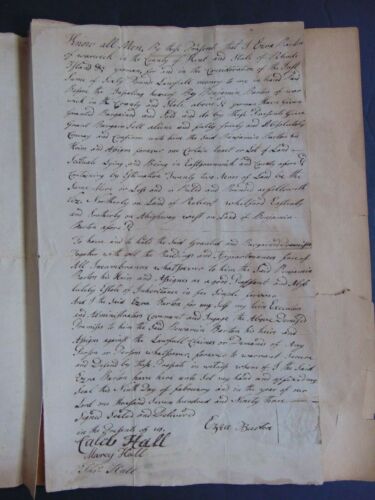 Know all Men, By these Presents that I Ezra Barton
of warwick in the County of Kent and State of Rhode
Island &c yeoman for and in the Consideration of the Just
Sum of Sixty Pound Lawfull money to me in hand Paid
Before the Ensealing hereof By Benjamin Barton of war
wick in the County and State above yeoman Have Given
Granted Bargained and Sold and do by these Presents Give
Grant Bargain Sell aliene and fully freely and Absolutely
Convey and Confirm unto him the Said Benjamin Barton his
Heirs and Assigns forever one Certain Lott of Land
Situate Lying and Being in and County afore
Containing by Estimation Twenty two Acres of Land be the
Same More or Less and is Butted and Bounded as followeth
Viz Northerly on Land of Easterly
and Southerly on Ahighway west on Land of Benjamin
Barton afore
To have and to hold the Said Granted and Bargained Premises
Together with all the Buildings and Appurtenances free of
All Incumbrances whatsoever to him the Said Benjamin
Barton his Heirs and Assigns as a Good and Abso
lutely Estate of Inheritance in fee Simple forever
And I the Said Ezra Barton for my Self my Heirs Executors
and Administrators Covenant and Engage the Above Demised
Premises to him the Said Benjamin Barton his heirs and
Assigns against the Lawfull Claims or Demands of Any
Person or Persons whatsoever forever to warrant Secure
and Defend by these Presents in witness whereof I the Said
Ezra Barton have here unto Set my hand and affixed my
Seal this Ninth Day of february and in the year of our
Lord one thousand Seven hundred and Ninety three
Signed Sealed and Delivered
in the Presents of us
Ezra Barton
Caleb Hall
Marcy Hall
Hall